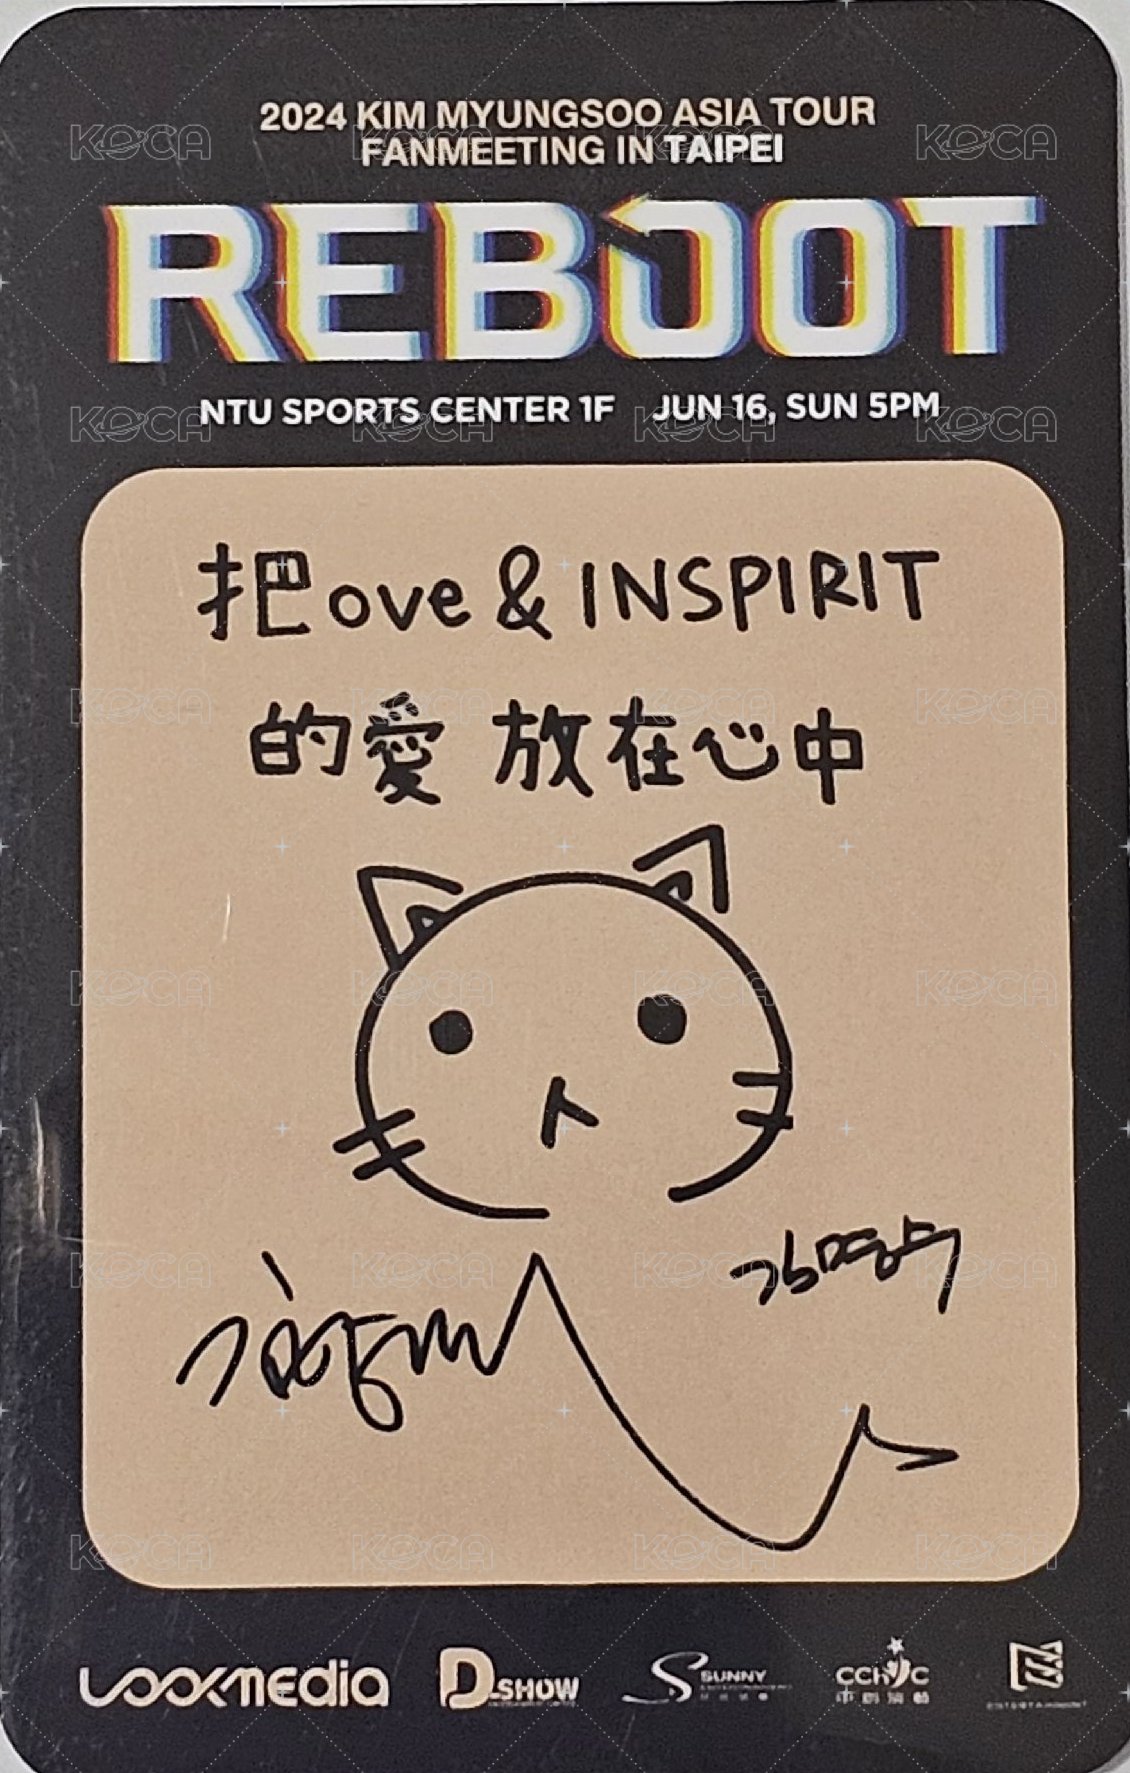 2024 KIM MYUNGSOO ASIA TOUR
FANMEETING IN TAIPEI
REBOOT
NTU SPORTS CENTER 1F JUN 16, SUN 5PM
把ove & INSPIRIT
的愛 放在心中
김명수
LOOKMEDIA
D.SHOW
SUNNY
CCHC
KOCA